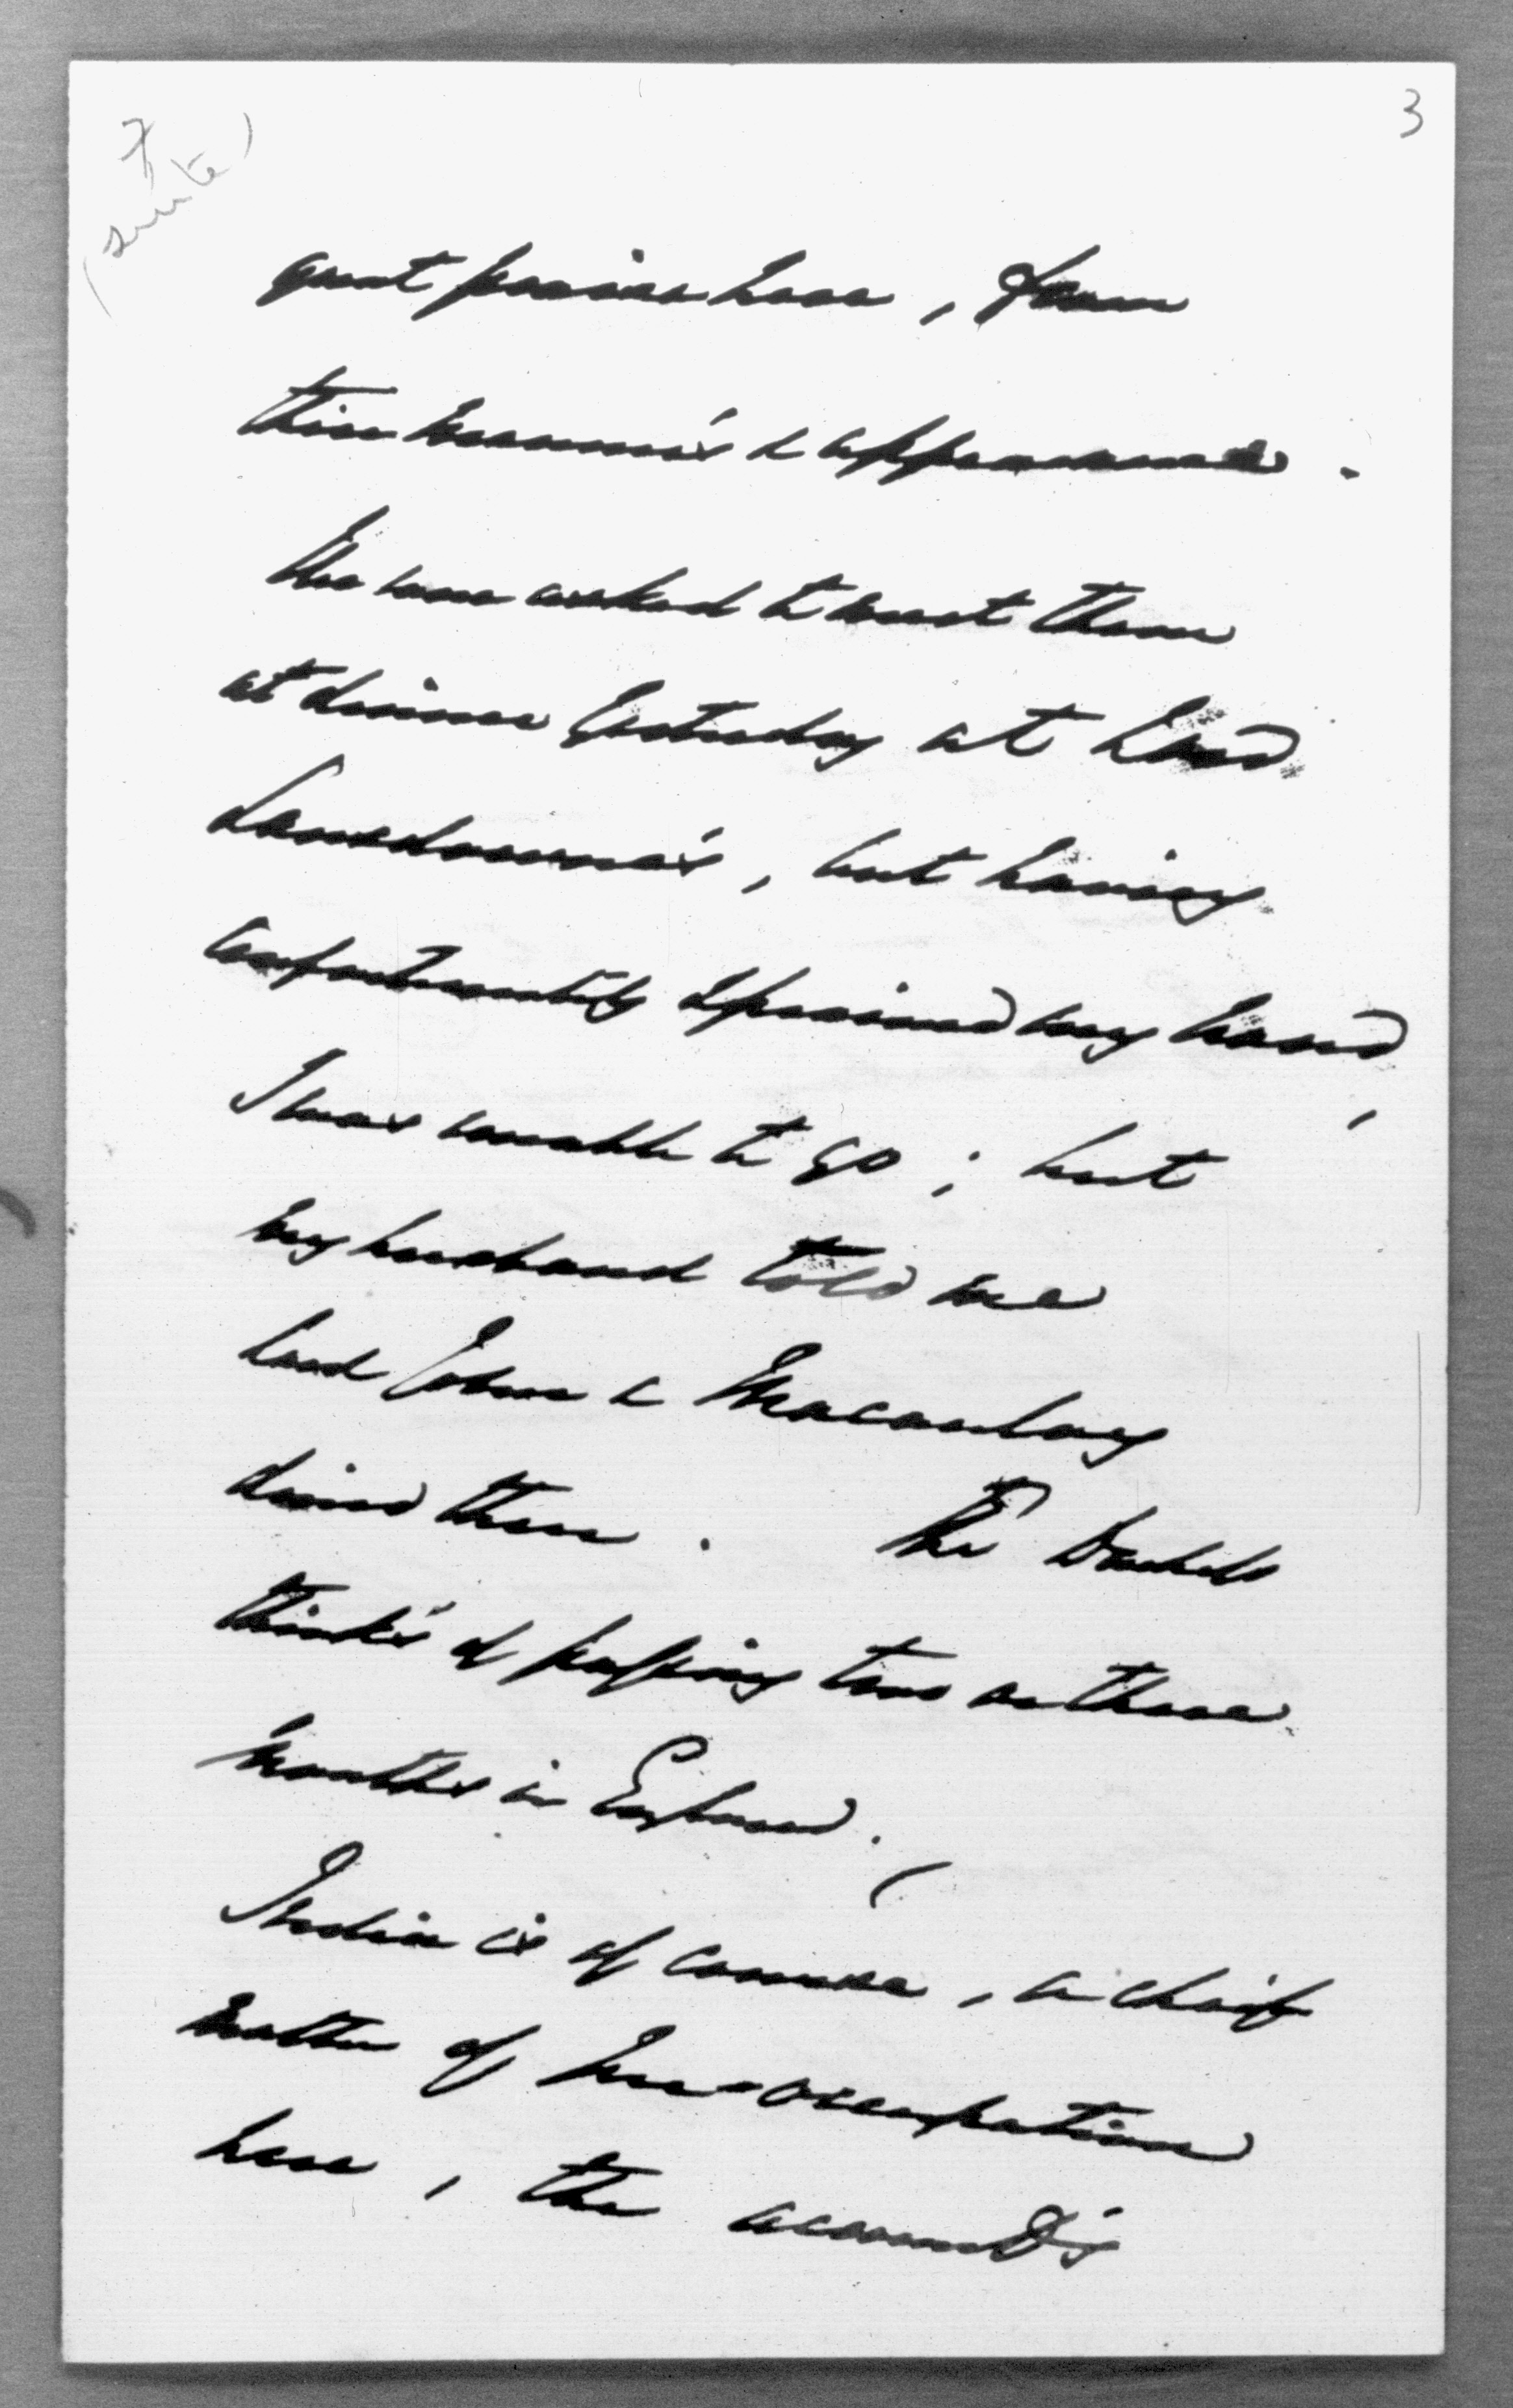 3
7
(suite)
great praise here, from
their manners & appearance.
We were asked to meet them
at dinner Yesterday at Lord
Lansdowne's, but having
unfortunately sprained my hand,
I was unable to go; but
my husband told me
Lord John & Macaulay
dined there. The
thinks of passing two or three
months in England.
India is of course, a chief
matter of pre-occupation
here, the accounts